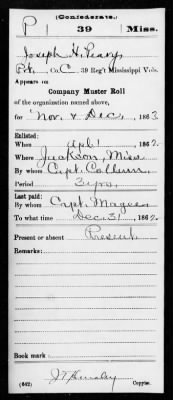 (Confederate.)
P 39 Miss.
Joseph H. Peary
Pvt., Co. C, 39 Reg't Mississippi Vols.
Appears on
Company Muster Roll
of the organization named above,
for Nov. & Dec., 1863
Enlisted:
When Apl 1, 1862.
Where Jackson, Miss
By whom Capt. Collum
Period 3 yrs.
Last paid:
By whom Capt. Magee
To what time Dec. 31, 1862.
Present or absent Present
Remarks:
Book mark:
(642) Copyist.